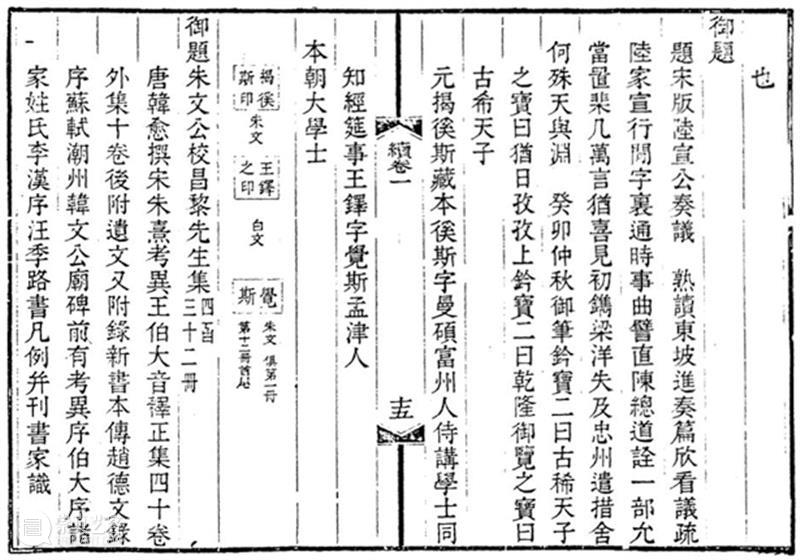 也
御題
題宋版陸宣公奏議　熟讀東坡進奏篇欣看議疏
陸家宣行閒字裏通時事曲譬直陳總道詮一部允
當置棐几萬言猶喜見初鐫梁洋失及忠州遣措舍
何殊天與淵　癸卯仲秋御筆鈐寶二曰古稀天子
之寶曰猶日孜孜上鈐寶二曰乾隆御覽之寶曰
古希天子
元揭傒斯藏本傒斯字曼碩富州人侍講學士同
知經筵事王鐸字覺斯孟津人
本朝大學士
揭傒斯印 朱文 王鐸之印 白文 覺斯 朱文 俱第一冊 第十二冊首尾
御題朱文公校昌黎先生集 四函 三十二冊
唐韓愈撰宋朱熹考異王伯大音釋正集四十卷
外集十卷後附遺文又附錄新書本傳趙德文錄
序蘇軾潮州韓文公廟碑前有考異序伯大序諸
家姓氏李漢序汪季路書凡例幷刊書家識
續卷一
十五